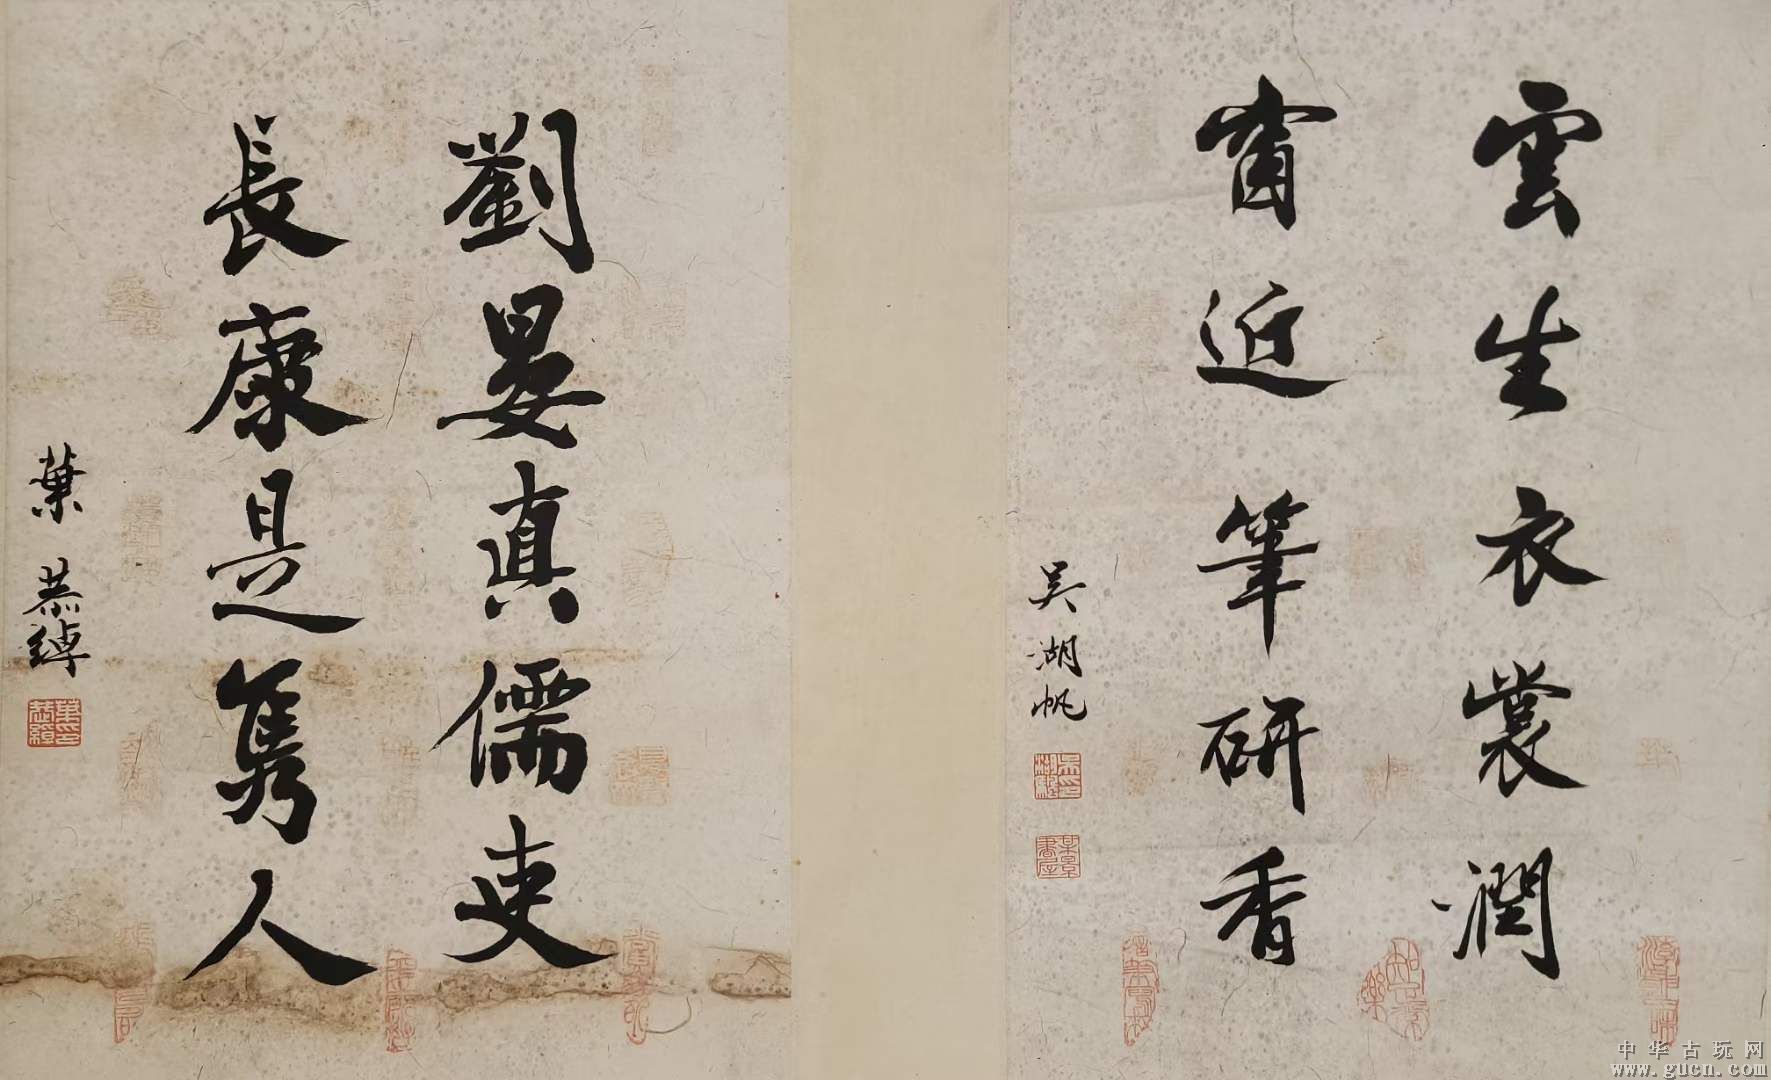 雲生衣裳潤
窗近筆研香
吳湖帆
劉晏真儒吏
長康是雋人
葉恭綽
中华古玩网
www.gucn.com